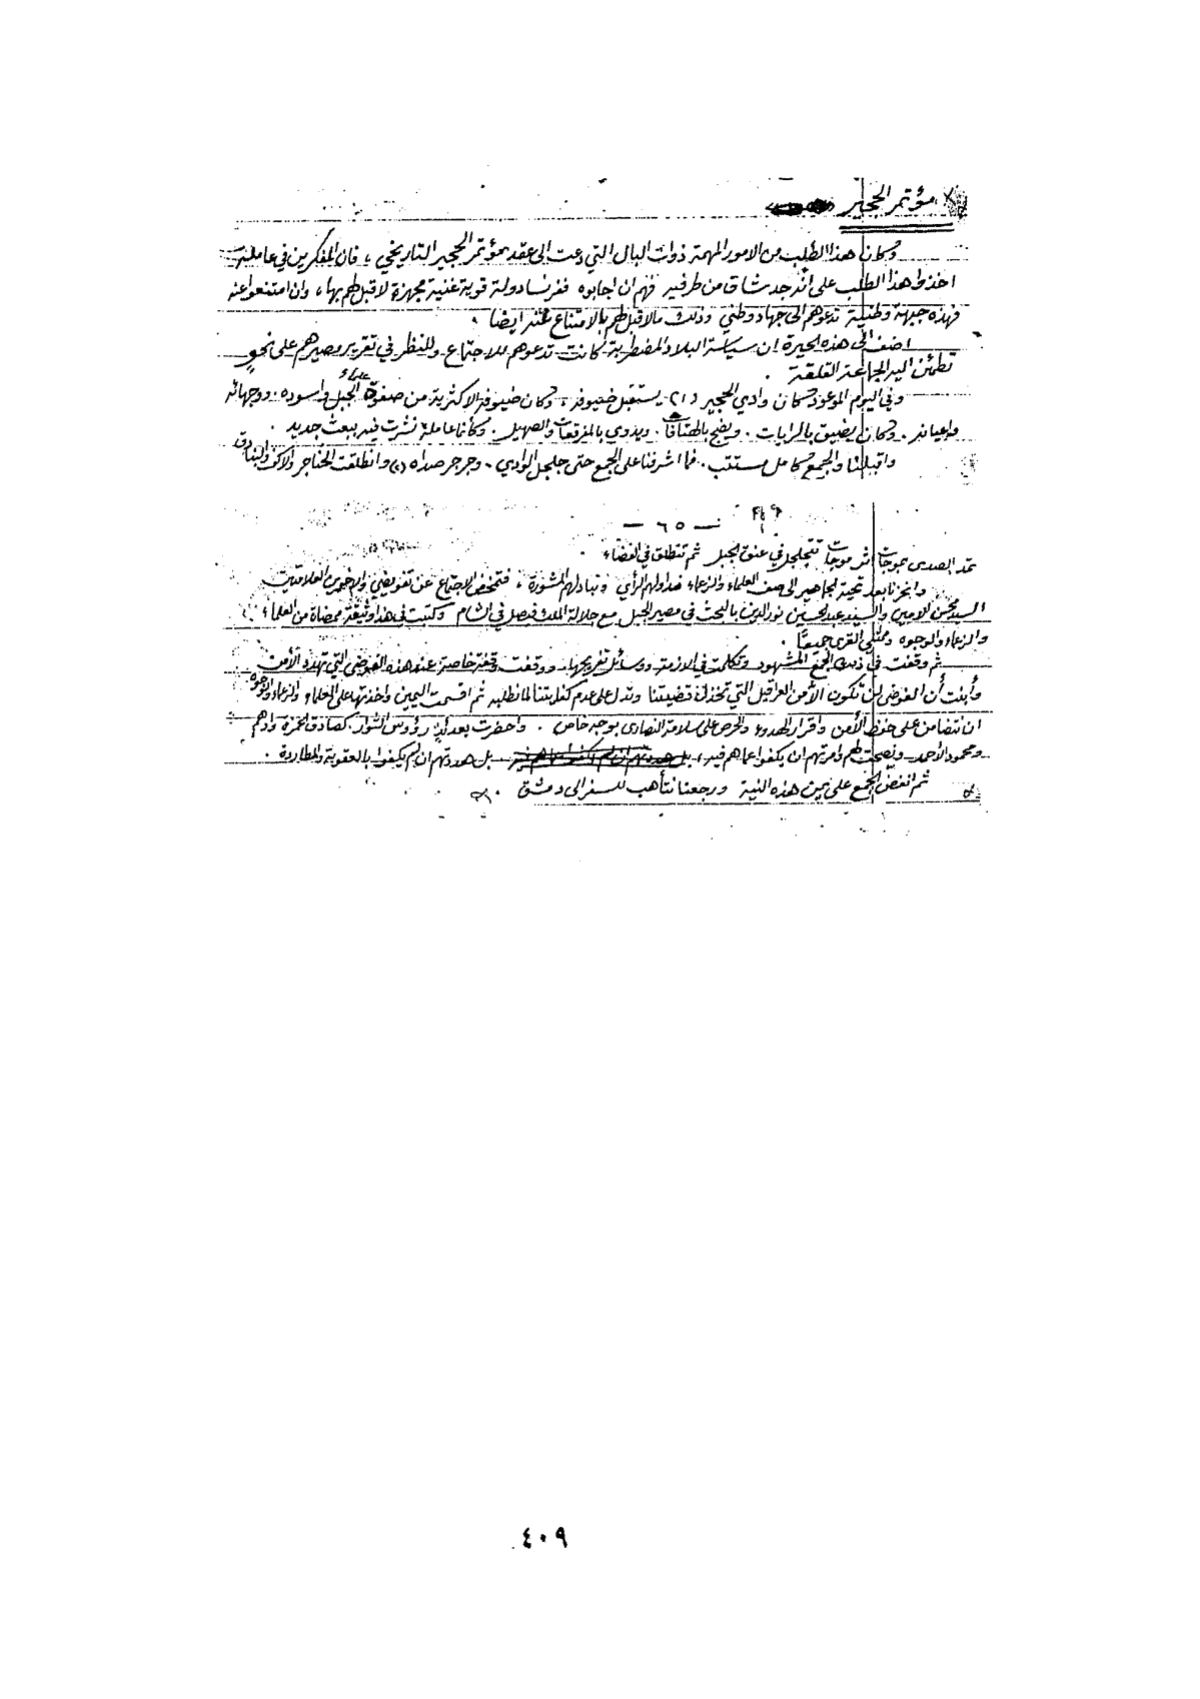 مؤتمر الحجير
وكان هذا الطلب من الامور المهمة ذوات البال التي دعت الى عقد مؤتمر الحجير التاريخي، فان المفكرين في عاملة
اخذوا هذا الطلب على انه جد شاق من طرفيه فهم ان اجابوه ففرنسا دولة قوية غنية مجهزة لا قبل لهم بها، وان امتنعوا عنه
فهذه جبهة وطنية تدعوهم الى جهاد وطني وذلك مالا قبل لهم بالامتناع عنه ايضا.
اضف الى هذه الحيرة ان سياسة البلاد المضطربة كانت تدعوهم للاجتماع وللنظر في تقرير مصيرهم على نحو
تطمئن اليه الجماعة القلقة.
وفي اليوم الموعود كان وادي الحجير (٢) يستقبل ضيوفه، وكان ضيوفه الاكثرية من صفوة علماء الجبل واسوده. ووجهائه
واعيانه. وكان يضيق بالرايات. ويضج بالهتافات. ويدوي بالمفرقعات والصهيل. وكأنما عاملة نشرت فيه ببعث جديد.
واقبلنا والجمع كامل مستتب. فما اشرفنا على الجمع حتى جلجل الوادي. وجرجر صداه (١) وانطلقت الحناجر والاكف والبنادق
— ٦٥ —
تمد الصدى بموجات اثر موجات تتجلجل في عنق الجبل ثم تنطلق في الفضاء.
وانحزنا بعد تحية الجماهير الى صف العلماء والزعماء نداولهم الرأي ونبادلهم المشورة، فتمخض الاجتماع عن تفويضي والاخوين العلامتين
السيد محسن الامين والسيد عبد الحسين نور الدين بالبحث في مصير الجبل مع جلالة الملك فيصل في الشام وكتبت في هذا وثيقة ممضاة من العلماء
والزعماء والوجوه وممثلي القرى جميعًا.
ثم وقفت في ذلك الجمع المشهود وتكلمت في الازمة ووسائل تفريجها، ووقفت وقفة خاصة عند هذه الفوضى التي تهدد الأمن
وأبنت أن الفوضى لن تكون الا من العراقيل التي تخذل قضيتنا وتدل على عدم كفايتنا لما نطلبه ثم اقسمت اليمين واخذتها على العلماء والزعماء والوجوه
ان نتضامن على حفظ الأمن واقرار الهدوء والحرص على سلامة النصارى بوجه خاص. واحضرت بعدئذ رؤوس الثوار كصادق الحمزة وادهم
ومحمود الأحمد ونصحت لهم وامرتهم ان يكفوا عما هم فيه، بل هددتهم ان لم يكفوا بالعقوبة والمطاردة.
ثم انفض الجمع على يمين هذه النية ورجعنا نتأهب للسفر الى دمشق.
٤٠٩